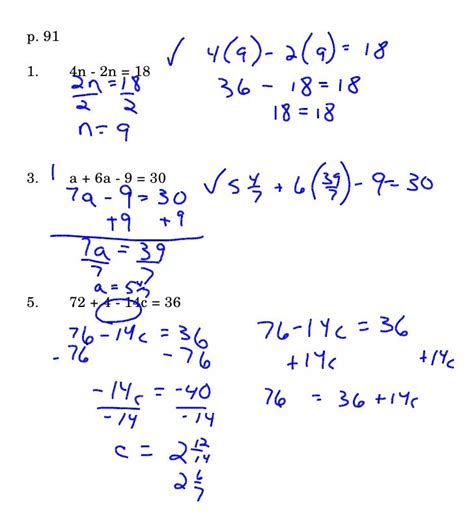 p. 91
✓ 4(9) - 2(9) = 18
1. 4n - 2n = 18
2n = 18
2 2
36 - 18 = 18
n = 9
18 = 18
3. 1 a + 6a - 9 = 30
7a - 9 = 30
✓ 5 4/7 + 6(39/7) - 9 = 30
+9 +9
7a = 39
7 7
a = 5 4/7
5. 72 + 4 - 14c = 36
76 - 14c = 36
-76 -76
-14c = -40
-14 -14
c = 2 12/14
2 6/7
76 - 14c = 36
+14c +14c
76 = 36 + 14c